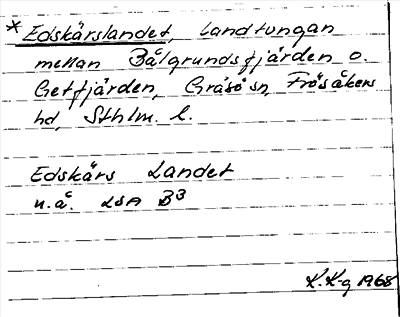 * Edskärslandet, Landtungan
mellan Bålgrundsfjärden o.
Getfjärden, Gräsö sn, Frösåkers
hd, Sthlm. l.
Edskärs Landet
u.å. LSA B3
K.K-g 1968